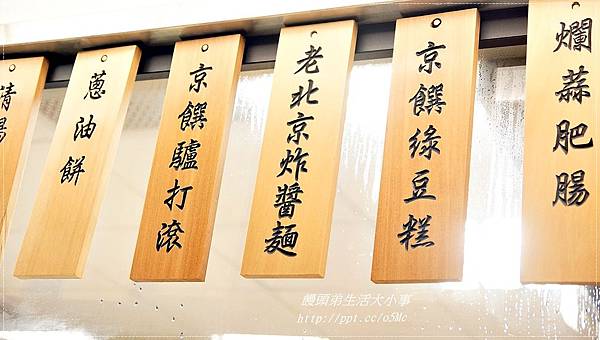 清湯
蔥油餅
京饌驢打滾
老北京炸醬麵
京饌綠豆糕
爛蒜肥腸
饅頭弟生活大小事
http://ppt.cc/o5Mc